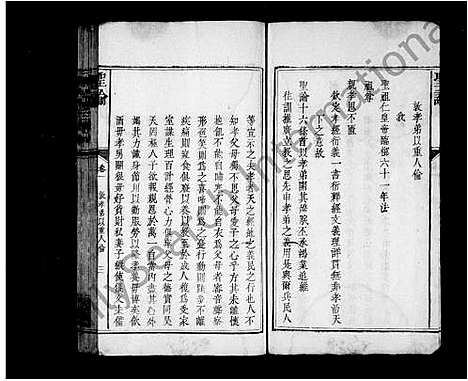 聖諭
敦孝弟以重人倫
我
聖祖仁皇帝臨御六十一年法
祖尊
親孝思不匱
欽定孝經衍義一書衍釋經文義理詳貫無非孝治天
下之意故
聖諭十六條首以孝弟開其端朕丕承鴻業追維
往訓推廣立教之思先申孝弟之義用是與爾兵民人
等宣示之夫孝者天之經地之義民之行也人不
知孝父母獨不思父母愛子之心乎方其未離懷
抱饑不能自哺寒不能自衣為父母者審音聲察
形色笑則為之喜啼則為之憂行動則跬步不離
疾痛則寢食俱廢以養以教至於成人復為授家
室謀生理百計經營心力俱瘁父母之德實同昊
天罔極人子欲報親恩於萬一自當內盡其心外
竭其力謹身節用以勤服勞以隆孝養毋博奕飲
酒毋好勇鬭狠毋好貨財私妻子縱使儀文未備
聖諭
卷一
敦孝弟以重人倫
International